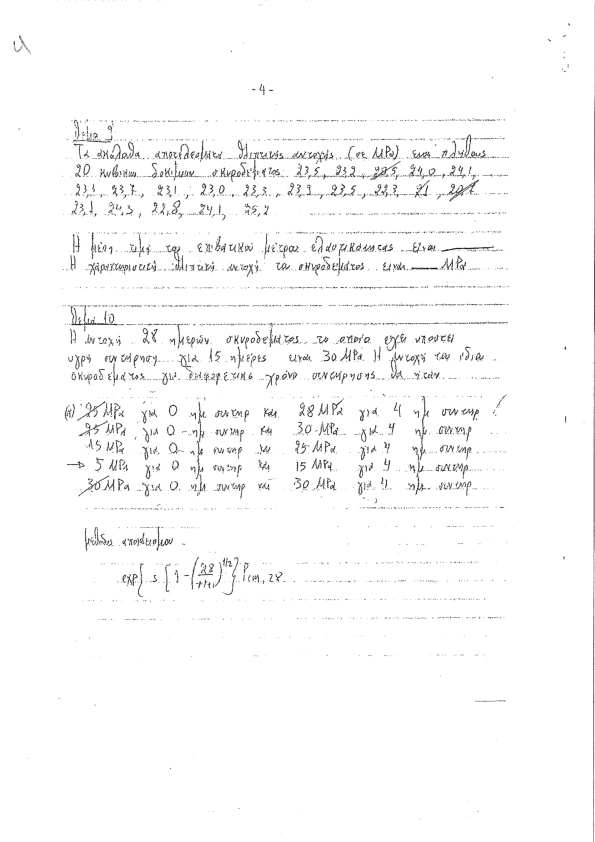 - 4 -
Θέμα 9
Τα ακόλουθα αποτελέσματα θλιπτικής αντοχής (σε MPa) ενός πλήθους
20 κυβικών δοκιμίων σκυροδέματος 23,5, 23,2, 20,5, 24,0, 24,1,
23,1, 23,7, 23,1, 23,0, 23,3, 23,9, 23,5, 22,3, 21,
23,1, 24,3, 22,8, 24,1, 25,2
Η μέση τιμή του μέτρου ελαστικότητας είναι
Η χαρακτηριστική θλιπτική αντοχή του σκυροδέματος είναι MPa
Θέμα 10
Η αντοχή 28 ημερών σκυροδέματος το οποίο έχει υποστεί
υγρή συντήρηση για 15 ημέρες είναι 30 MPa. Η αντοχή του ίδιου
σκυροδέματος για διαφορετικό χρόνο συντήρησης θα ήταν
25 MPa για 0 ημ συντηρ και 28 MPa για 4 ημ συντηρ
25 MPa για 0 ημ συντηρ και 30 MPa για 4 ημ συντηρ
15 MPa για 0 ημ συντηρ και 25 MPa για 4 ημ συντηρ
→ 5 MPa για 0 ημ συντηρ και 15 MPa για 4 ημ συντηρ
30 MPa για 0 ημ συντηρ και 30 MPa για 4 ημ συντηρ
exp{ s [1 - (28/)^1/2]} 28